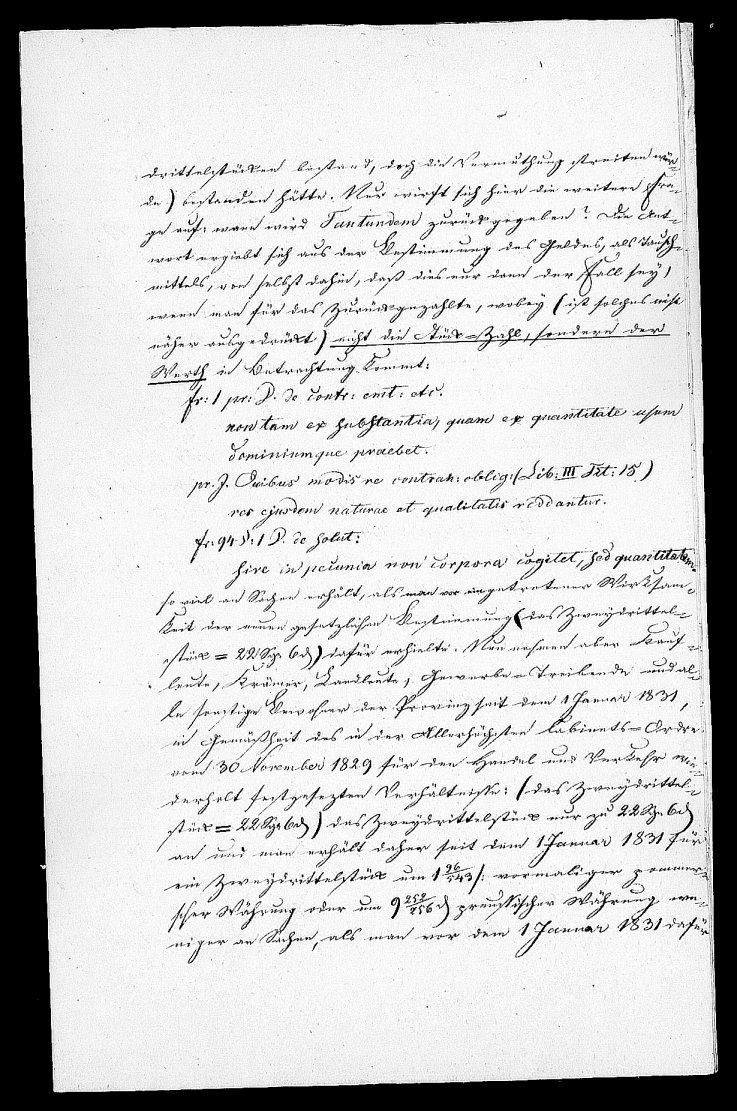 drittelstücken bestand, doch die Vermuthung streiten wür-
de) bestanden hätte. Nur wirft sich hier die weitere Fra-
ge auf: wann wird Tantundem zurückgegeben? Die Ant-
wort ergiebt sich aus der Bestimmung des Geldes, als Tausch-
mittels, von selbst dahin, daß dies nur dann der Fall sey,
wenn man für das Zurückgezahlte, wobey (ist solches nicht
näher ausgedrückt) nicht die Stück-Zahl, sondern der
Werth in Betrachtung kommt:
fr: 1 pr: D. de contr: emt: etc.
non tam ex substantia, quam ex quantitate usum
dominiumque praebet.
pr. J. Quibus modis re contrah: oblig: (Lib: III Tit: 15.)
res ejusdem naturae et qualitatis reddantur.
fr: 94 §: 1 D. de solut:
sive in pecunia non corpora cogitet, sed quantitatem.
so viel an Sachen erhält, als man vor eingetretener Wirksam-
keit der neuen gesetzlichen Bestimmung (das Zweydrittel-
stück = 22 Sgr 6 d) dafür erhielte. Nun nehmen aber Kauf-
leute, Krämer, Landleute, Gewerbe-Treibende und al-
le sonstige Bewohner der Provinz seit dem 1 Januar 1831,
in Gemäßheit des in der Allerhöchsten Cabinets-Ordre
vom 30 November 1829 für den Handel und Verkehr wie-
derholt festgesetzten Verhältnisses: (das Zweydrittel-
stück = 22 Sgr 6 d) das Zweydrittelstück nur zu 22 Sgr 6 d
an und man erhält daher seit dem 1 Januar 1831 für
ein Zweydrittelstück um 1 96/543 /: vormaliger pommer-
scher Währung oder um 9 252/256 d preußischer Währung we-
niger an Sachen, als man vor dem 1 Januar 1831 dafür